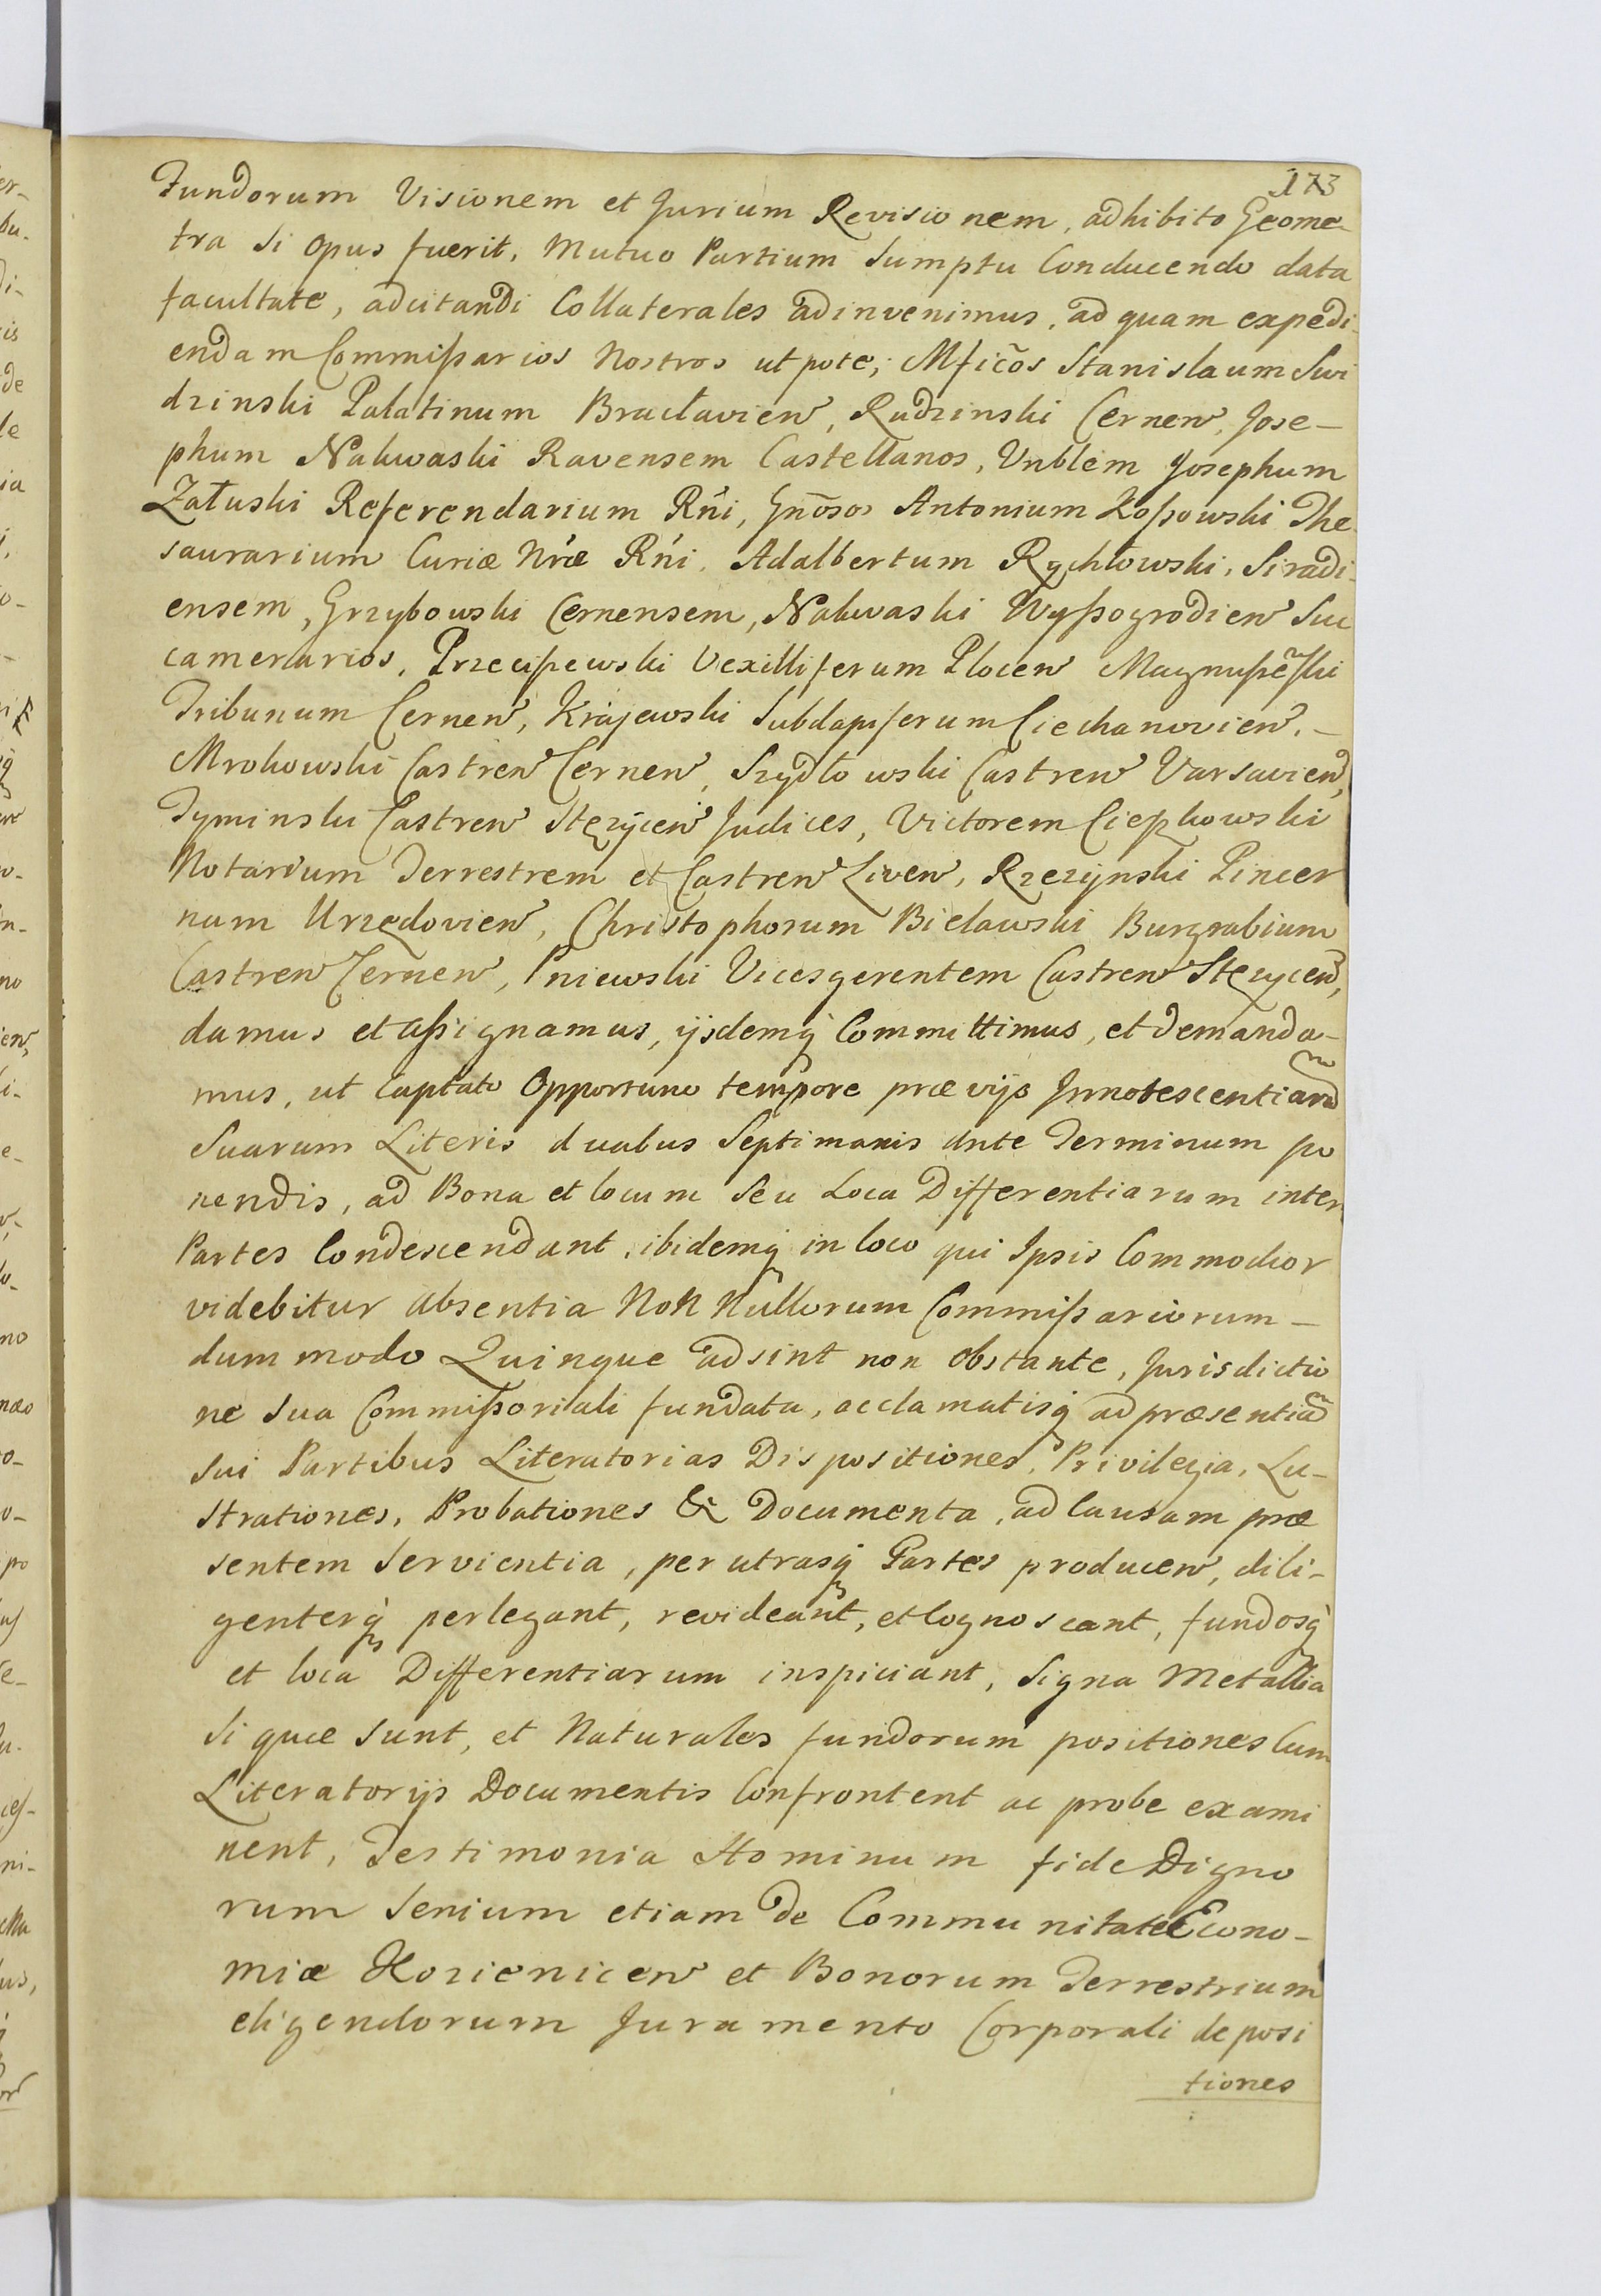 173
Fundorum Visionem et Jurium Revisionem, adhibito Geome-
tra si opus fuerit, Mutuo Partium Sumptu Conducendo data
facultate, adcitandi Collaterales adinvenimus, ad quam expedi-
endam Commißarios Nostros utpote; Mficõs Stanislaum Swi
dzinski Palatinum Bracłavien, Rudzinski Cernen, Jose-
phum Nakwaski Ravensem Castellanos, Unblem Josephum
Załuski Referendarium Rñi, Gñosos Antonium Koßowski The-
saurarium Curiæ Nræ Rñi, Adalbertum Rychłowski, Siradi-
ensem, Grzybowski Cernensem, Nakwaski Wyßogrodien Suc
camerarios, Przeciszewski Vexilliferum Plocen Magnuszewski
Tribunum Cernen, Krajewski Subdapiferum Ciechanovien, -
Mrokowski Castren Cernen, Szydłowski Castren Varsavien,
Tyminski Castren Stezycen Judices, Victorem Cieszkowski
Notarium Terrestrem et Castren Liven, Rzezynski Pincer
nam Urzędovien, Christophorum Bielawski Burgrabium
Castren Cernen, Pniewski Vicesgerentem Castren Stezycen,
damus et aßignamus, ijsdemq Committimus, et demanda-
mus, ut captato Opportuno tempore prævijs Innotescentiarum
Suarum Literis duabus Septimanis ante Terminum po
nendis, ad Bona et locum seu Loca Differentiarum inter
Partes Condescendant, ibidemq in loco qui Ipsis Commodior
videbitur absentia Non Nullorum Commißariorum -
dum modo Quinque adsint non obstante, Jurisdictio
ne sua Commißoriali fundata, acclamatisq ad præsentiam
sui Partibus Literatorias Dispositiones, Privilegia, Lu-
strationes, Probationes & Documenta, ad Causam præ
sentem servientia, per utrasq Partes producen, dili-
genterq perlegant, revideant, et Cognoscant, fundosq
et loca Differentiarum inspiciant, Signa Metallia
si quæ sunt, et Naturales fundorum positiones Cum
Literatorijs Documentis Confrontent ac probe exami
nent, Testimonia Hominum fide Digno
rum Senium etiam de Communitate Econo-
miæ Kozienicen et Bonorum Terrestrium
eligendorum Juramento Corporali deposi
tiones